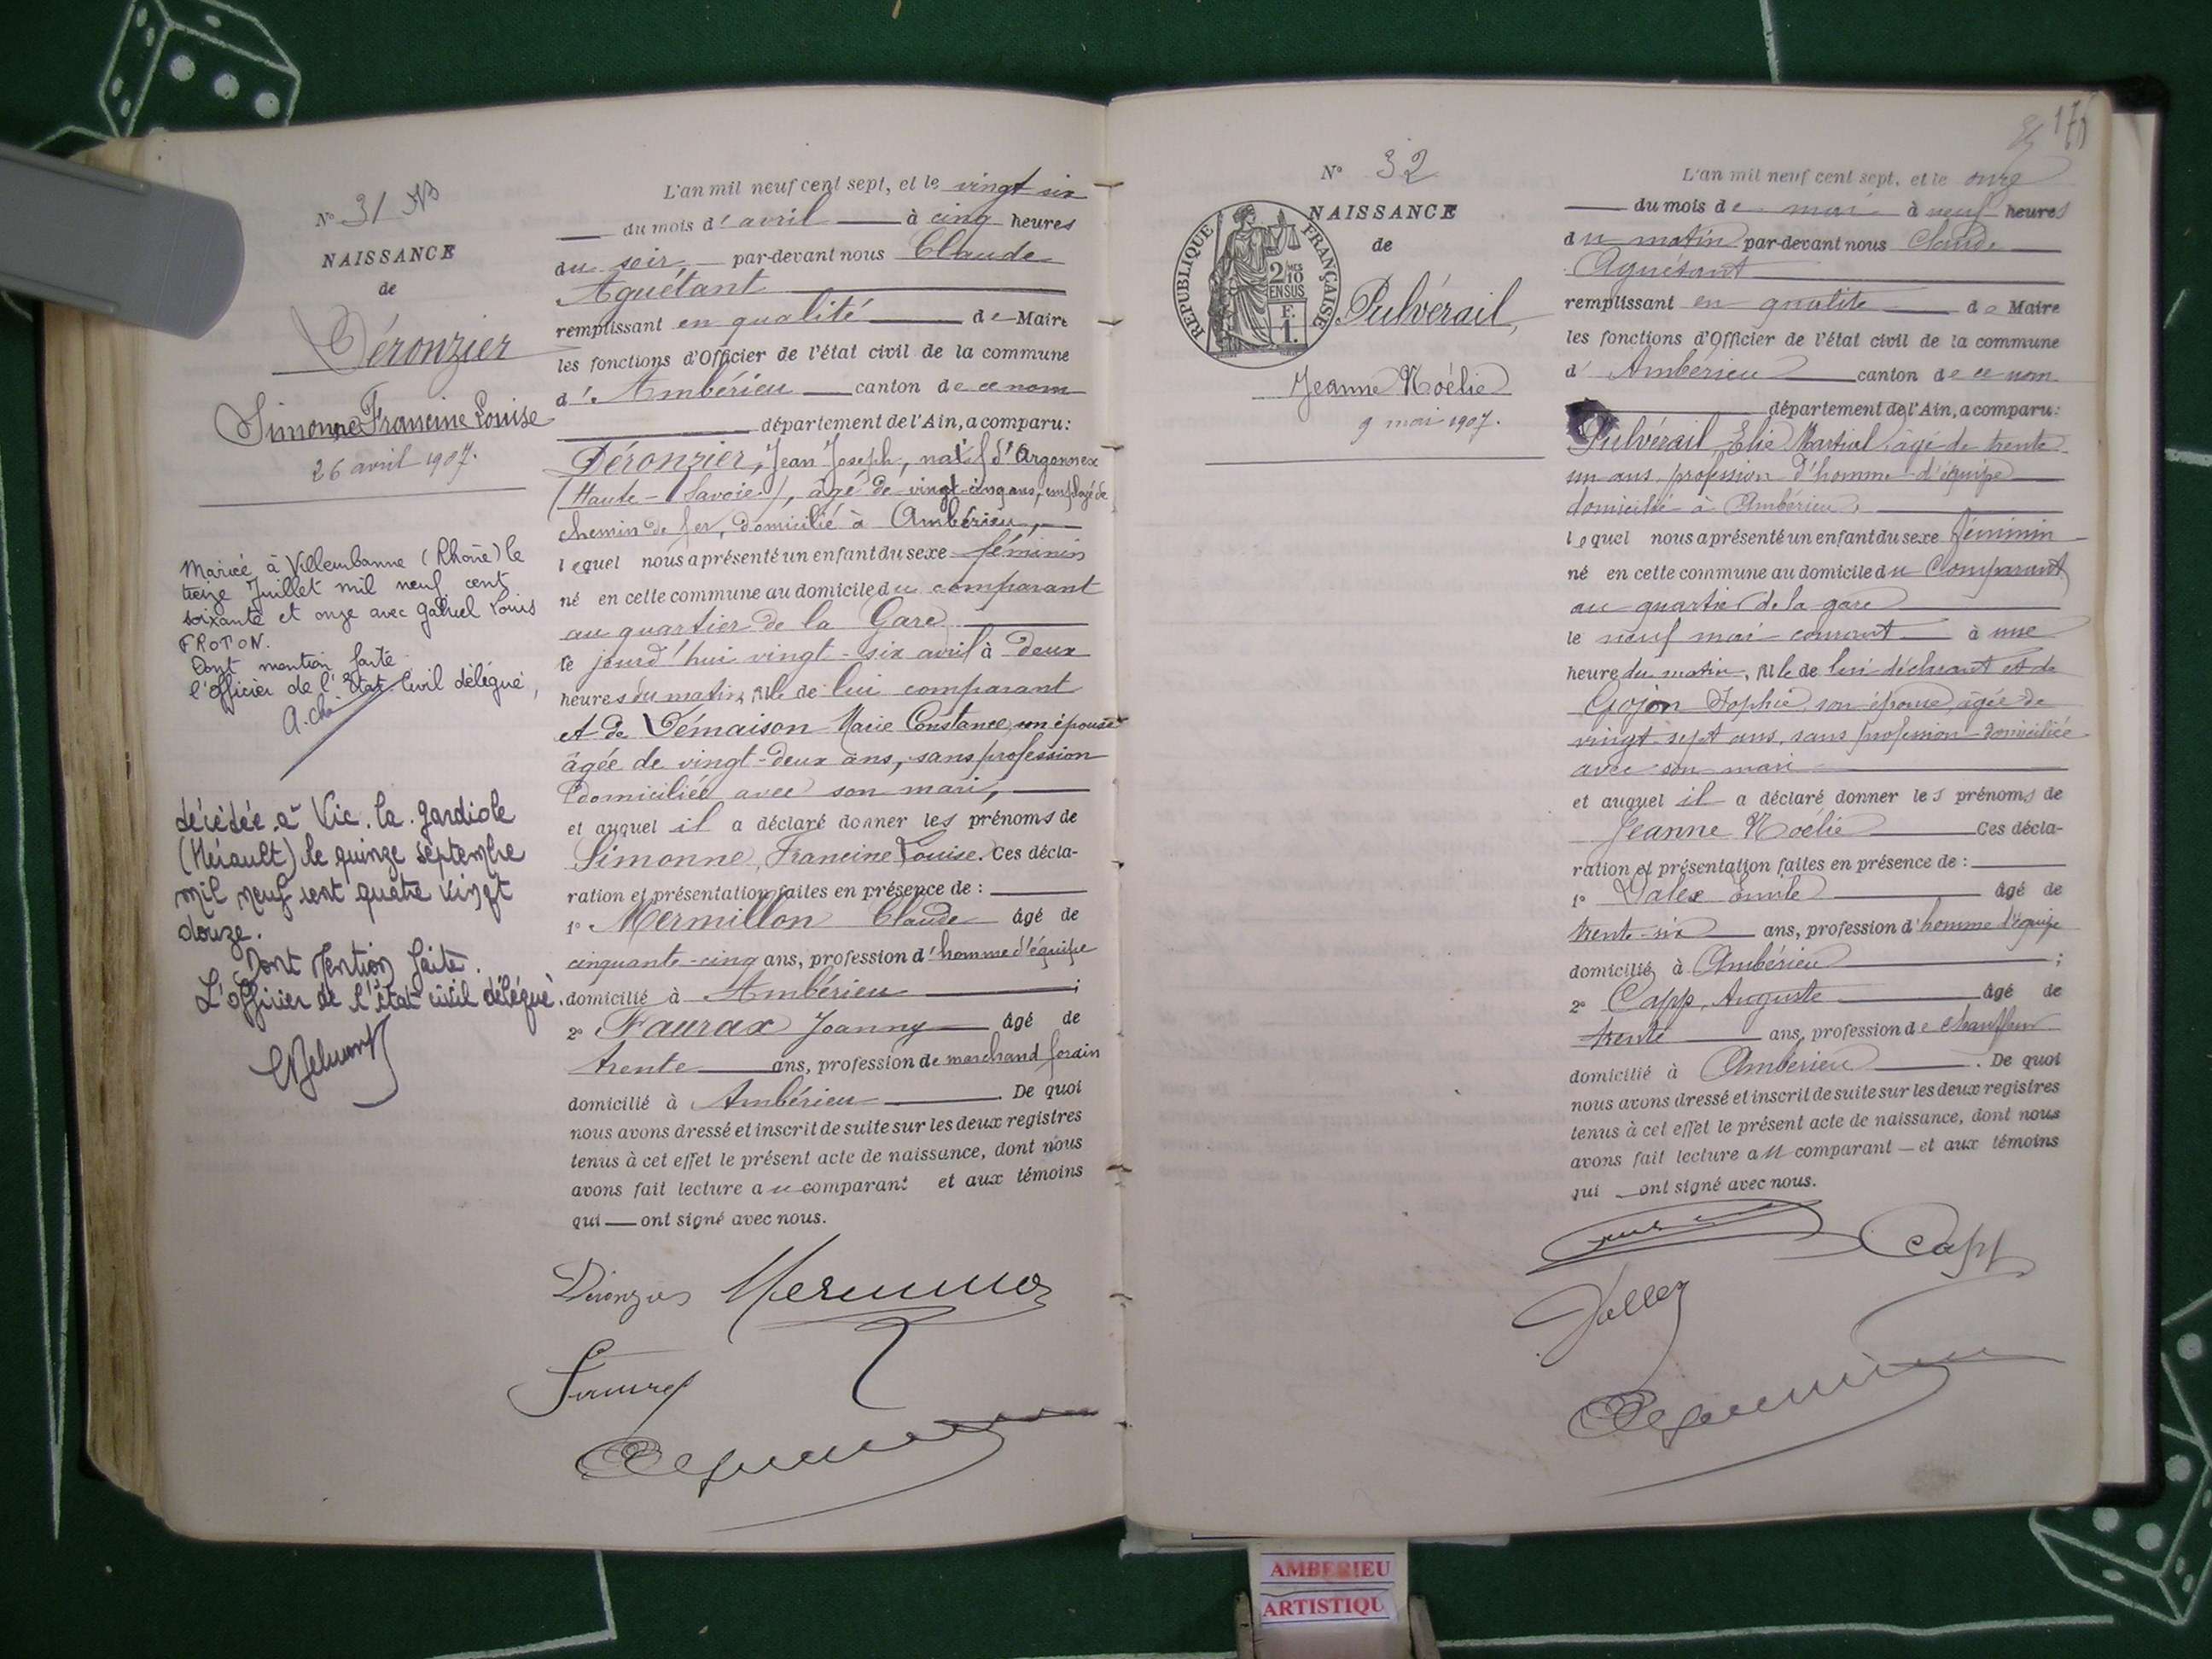 N° 31
NAISSANCE
de
Déronzier
Simonne Francine Louise
26 avril 1907.
Mariée à Villeurbanne (Rhône) le
treize Juillet mil neuf cent
soixante et onze avec Gabriel Louis
FROTON.
Dont mention faite
l'officier de l'Etat Civil délégué,
décédée à Vic. la. Gardiole
(Hérault) le quinze septembre
mil neuf cent quatre vingt
douze.
Dont Mention faite.
L'officier de l'état civil délégué.
L'an mil neuf cent sept, et le vingt six
du mois d'avril à cinq heures
du soir, par-devant nous Claude
Aguétant
remplissant en qualité de Maire
les fonctions d'Officier de l'état civil de la commune
d'Ambérieu canton de ce nom
département de l'Ain, a comparu:
Déronzier, Jean Joseph, natif d'Argonnex
(Haute-Savoie), âgé de vingt-cinq ans, employé de
chemin de fer, domicilié à Ambérieu,
lequel nous a présenté un enfant du sexe féminin
né en cette commune au domicile du comparant
au quartier de la Gare
le jourd'hui vingt-six avril à deux
heures du matin, fille de lui comparant
et de Démaison Marie Constance, son épouse
âgée de vingt-deux ans, sans profession
domiciliée avec son mari,
et auquel il a déclaré donner les prénoms de
Simonne, Francine Louise. Ces décla-
ration et présentation faites en présence de :
1° Mermillon Claude âgé de
cinquante-cinq ans, profession d'homme d'équipe
domicilié à Ambérieu ;
2° Faurax Joanny âgé de
trente ans, profession de marchand forain
domicilié à Ambérieu . De quoi
nous avons dressé et inscrit de suite sur les deux registres
tenus à cet effet le présent acte de naissance, dont nous
avons fait lecture au comparant et aux témoins
qui ont signé avec nous.
Déronzier
N° 32
NAISSANCE
de
RÉPUBLIQUE FRANÇAISE
2/10 EN SUS
F. 1.
Pulvérail,
Jeanne Noélie
9 mai 1907.
L'an mil neuf cent sept, et le onze
du mois de mai à neuf heures
du matin par-devant nous Claude
Aguétant
remplissant en qualité de Maire
les fonctions d'Officier de l'état civil de la commune
d'Ambérieu canton de ce nom
département de l'Ain, a comparu:
Pulvérail Elie Martial âgé de trente
un ans profession d'homme d'équipe
domicilié à Ambérieu,
lequel nous a présenté un enfant du sexe féminin
né en cette commune au domicile du Comparant
au quartier de la gare
le neuf mai courant à une
heure du matin, fille de lui déclarant et de
Gojon Sophie son épouse, âgée de
vingt-sept ans, sans profession domiciliée
avec son mari
et auquel il a déclaré donner les prénoms de
Jeanne Noélie Ces décla-
ration et présentation faites en présence de :
1° âgé de
trente-six ans, profession d'homme d'équipe
domicilié à Ambérieu ;
2° Capp, Auguste âgé de
trente ans, profession de chauffeur
domicilié à Ambérieu . De quoi
nous avons dressé et inscrit de suite sur les deux registres
tenus à cet effet le présent acte de naissance, dont nous
avons fait lecture au comparant et aux témoins
qui ont signé avec nous.
Capp
AMBERIEU
ARTISTIQU